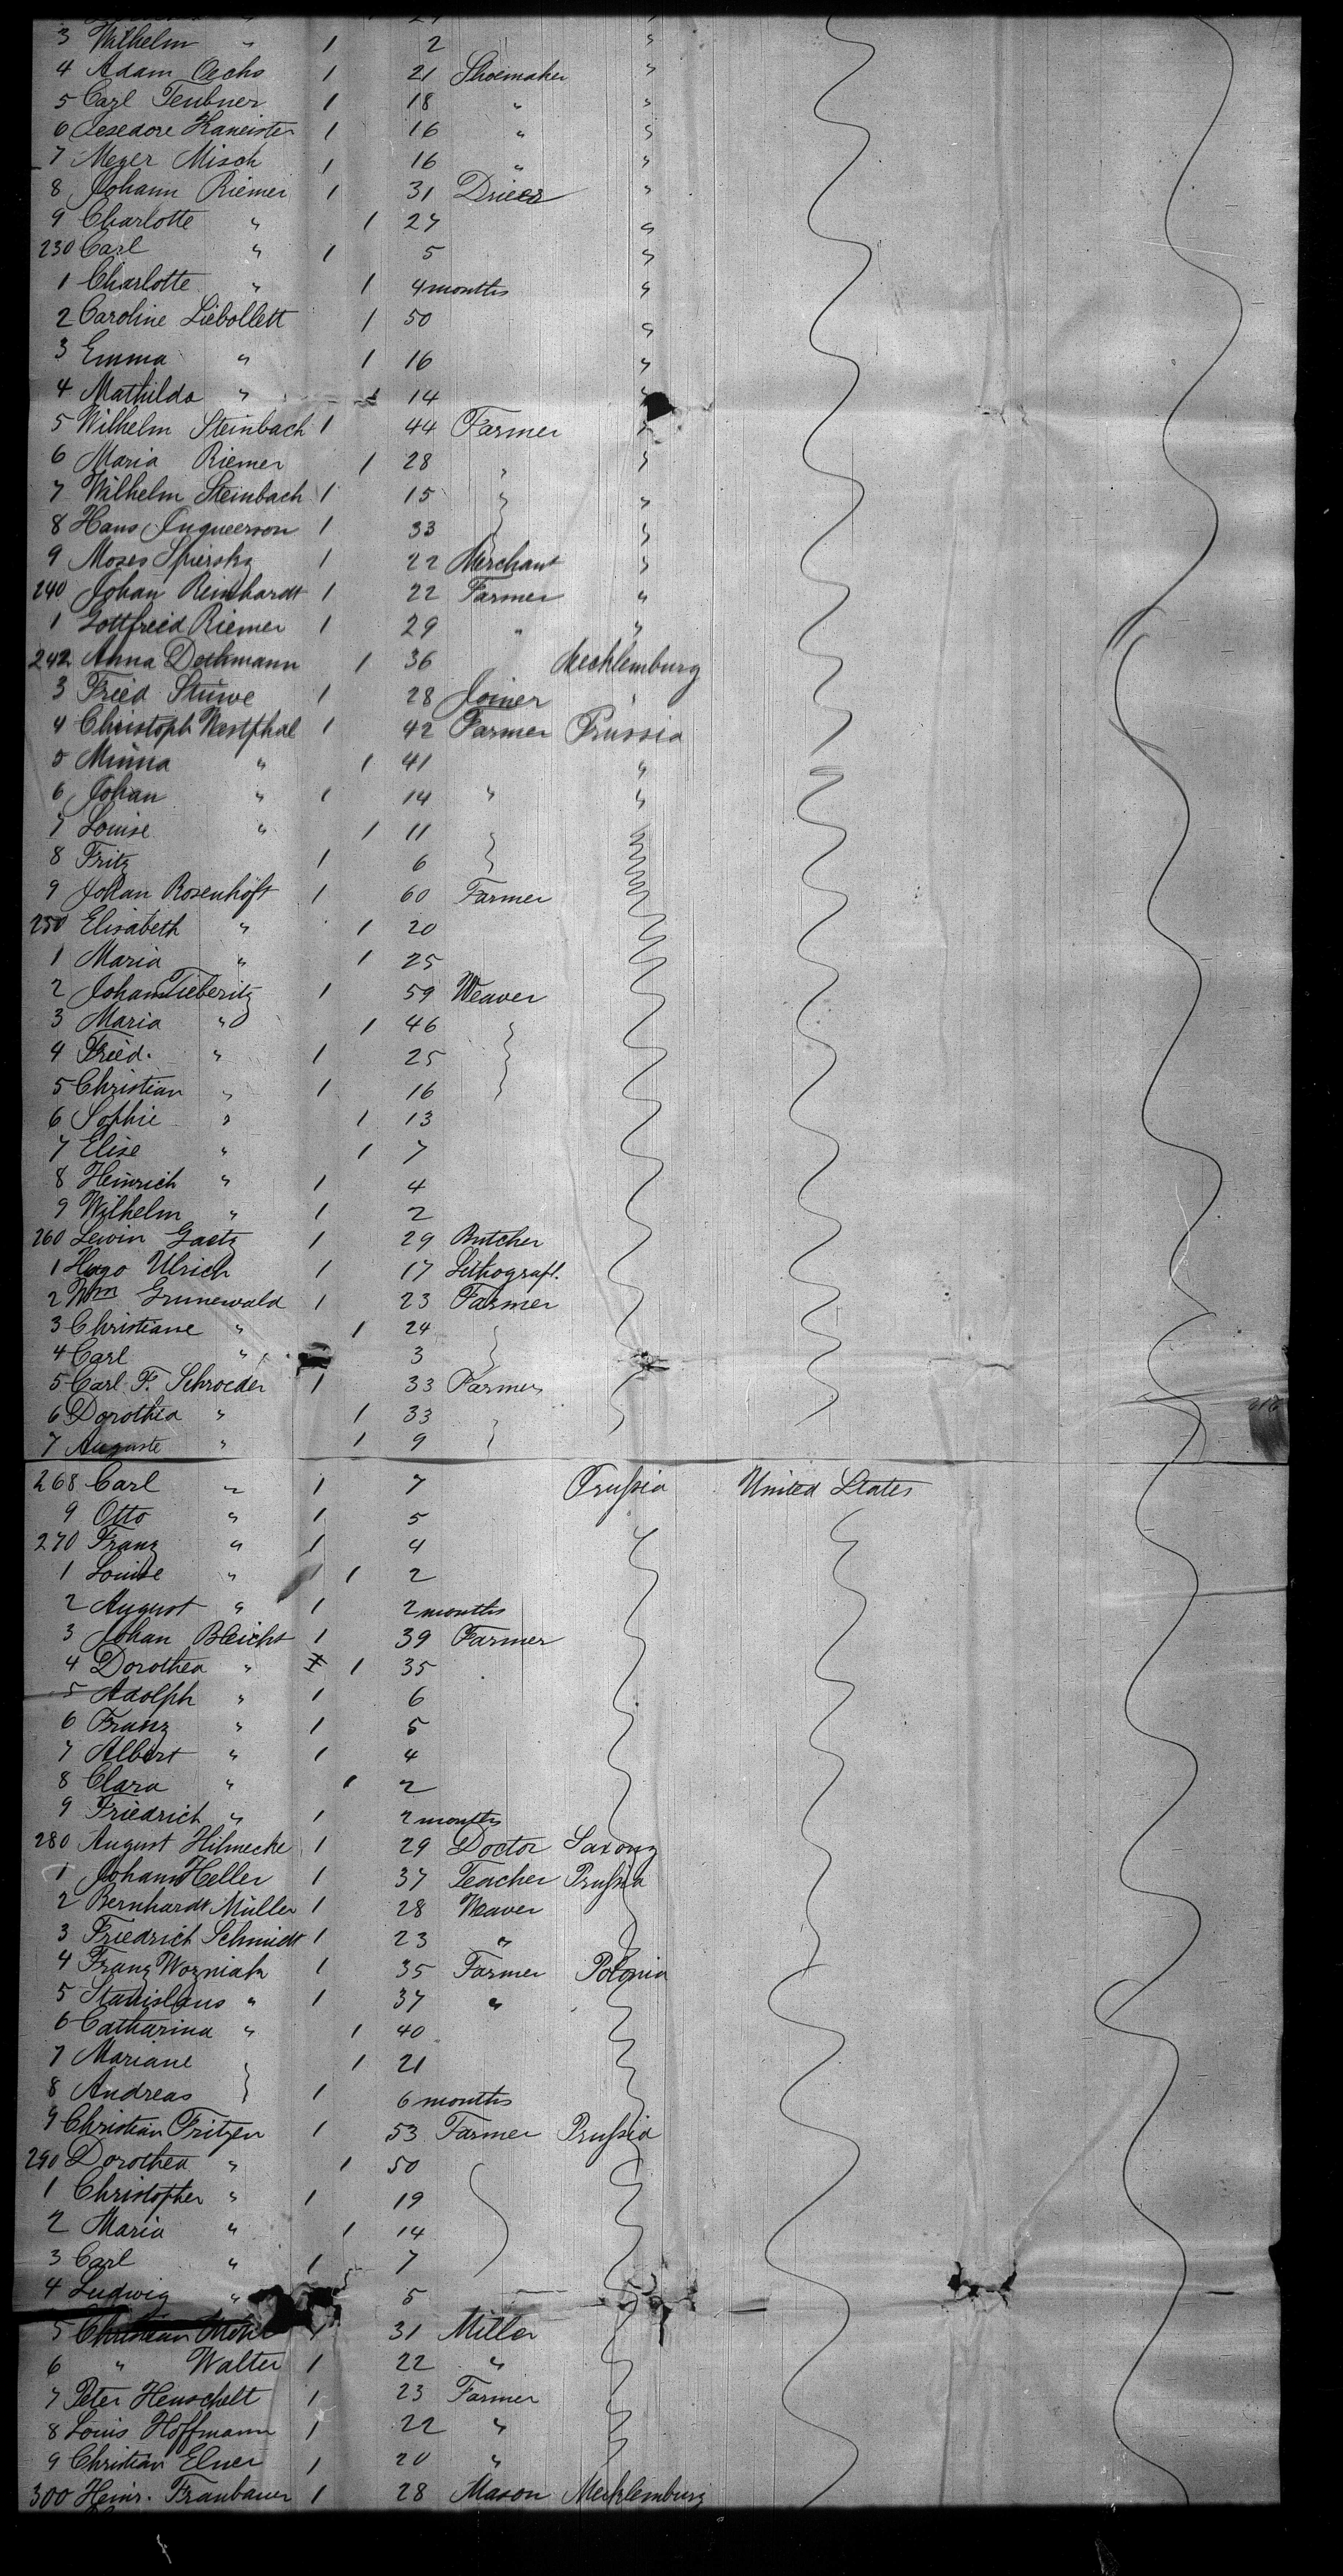 3 Wilhelm " 1 2 "
4 Adam Oechs 1 21 Shoemaker "
5 Carl Teubner 1 18 " "
6 1 16 " "
7 Meyer Misch 1 16 " "
8 Johann Riemer 1 31 "
9 Charlotte " 1 27 "
230 Carl " 1 5 "
1 Charlotte " 1 4 months "
2 Caroline Liebollett 1 50 "
3 Emma " 1 16 "
4 Mathilda " 1 14 "
5 Wilhelm Steinbach 1 44 Farmer "
6 Maria Riemer 1 28 " "
7 Wilhelm Steinbach 1 15 "
8 Hans 1 33 "
9 Moses 1 22 Merchant "
240 Johan Reinhardt 1 22 Farmer "
1 Gottfried Riemer 1 29 " "
242 Anna 1 36 Mecklemburg
3 Fried Stüwe 1 28 Joiner "
4 Christoph Westphal 1 42 Farmer Prussia
5 Minna " 1 41 "
6 Johan " 1 14 " "
7 Louise " 1 11
8 Fritz 1 6
9 Johan Rosenhöft 1 60 Farmer
250 Elisabeth " 1 20
1 Maria " 1 25
2 Johann Tieberitz 1 59 Weaver
3 Maria " 1 46
4 Fried. " 1 25
5 Christian " 1 16
6 Sophie " 1 13
7 Elise " 1 7
8 Heinrich " 1 4
9 Wilhelm " 1 2
260 Lewin Gaetz 1 29 Butcher
1 Hugo Ulrich 1 17 Lithograf.
2 Wm Grunewald 1 23 Farmer
3 Christiane " 1 24
4 Carl " 3
5 Carl F. Schroeder 1 33 Farmer
6 Dorothea " 1 33
7 Auguste " 1 9
268 Carl " 1 7 Prussia United States
9 Otto " 1 5
270 Franz " 1 4
1 Louise " 1 2
2 August " 1 2 months
3 Johan Bleichs 1 39 Farmer
4 Dorothea " 1 35
5 Adolph " 1 6
6 Franz " 1 5
7 Albert " 1 4
8 Clara " 1 2
9 Friedrich " 1 2 months
280 August Hilmecke 1 29 Doctor Saxony
1 Johann Heller 1 37 Teacher Prussia
2 Bernhardt Müller 1 28 Weaver
3 Friedrich Schmidt 1 23 "
4 Franz Wozniak 1 35 Farmer Polonia
5 Stanislaus " 1 37 "
6 Catharina " 1 40
7 Mariane 1 21
8 Andreas 1 6 months
9 Christian Fritzen 1 53 Farmer Prussia
290 Dorothea " 1 50
1 Christopher " 1 19
2 Maria " 1 14
3 Carl " 1 7
4 Ludwig " 5
5 Christian 1 31 Miller
6 " Walter 1 22 "
7 Peter Henschelt 1 23 Farmer
8 Louis Hoffmann 1 22 "
9 Christian Elner 1 20 "
300 Heinr. Franbauer 1 28 Mason Mecklemburg